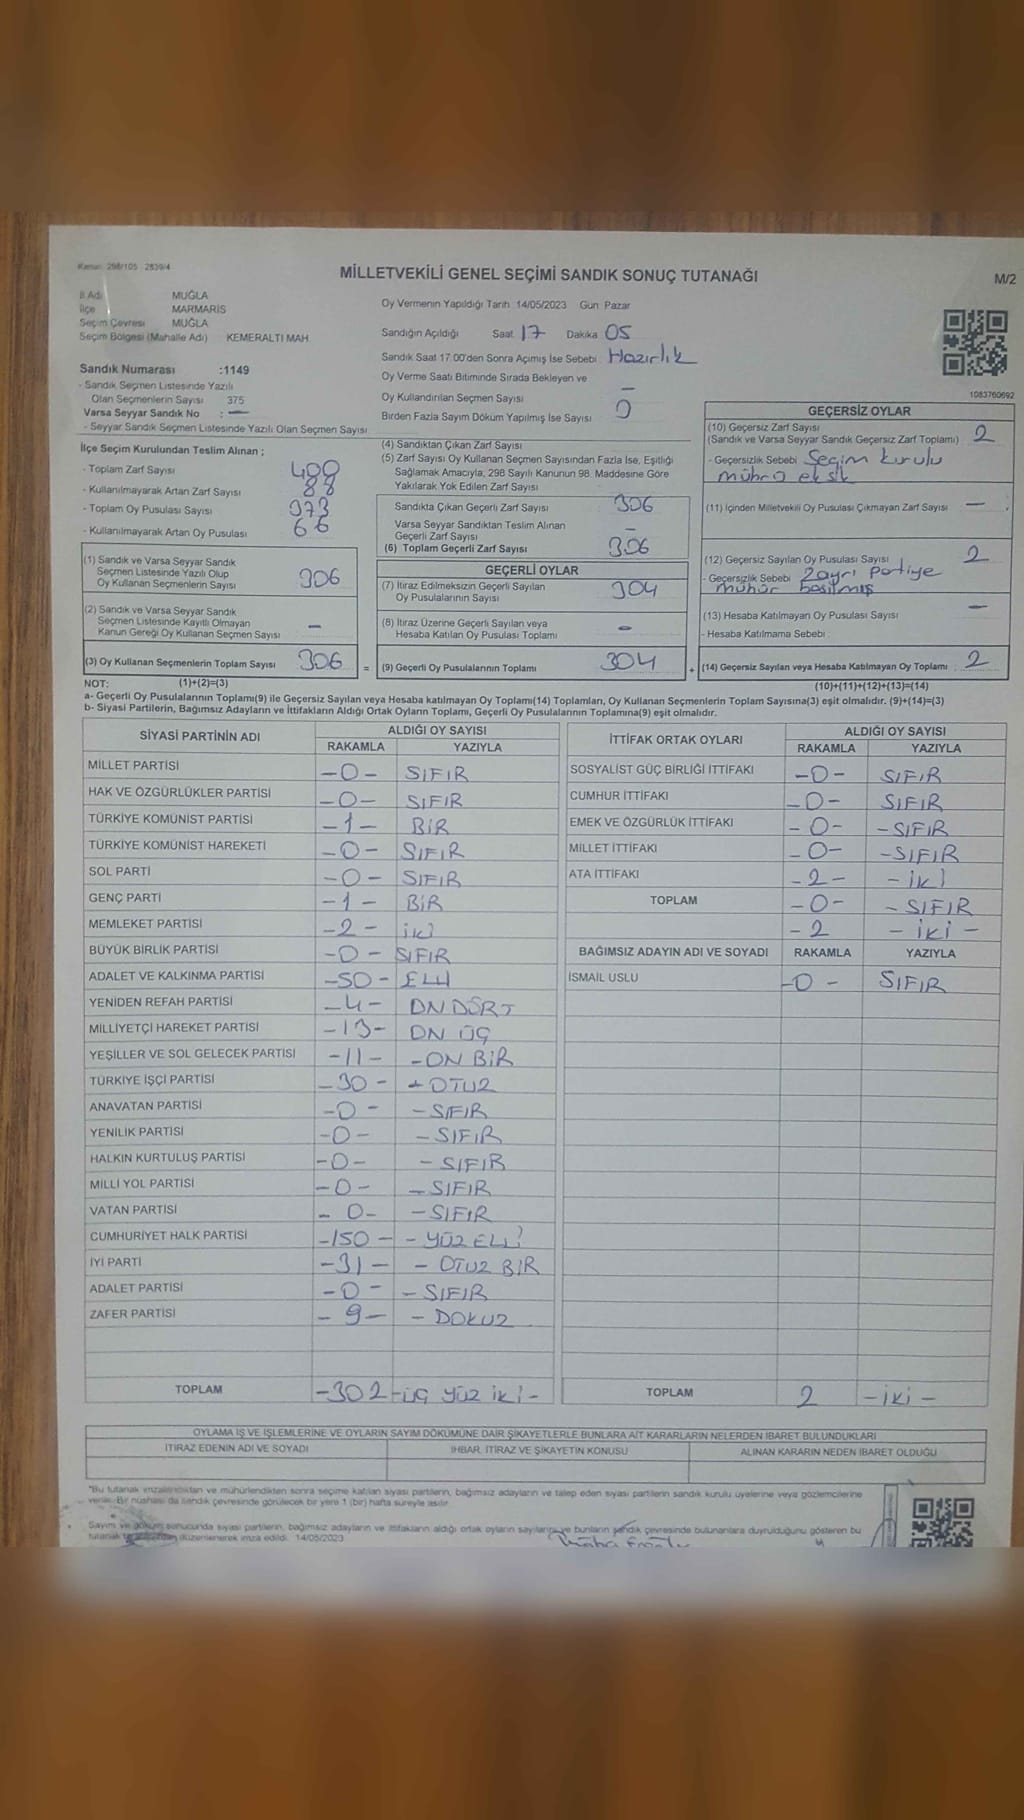 Kanun: 298/105 2839/4
MİLLETVEKİLİ GENEL SEÇİMİ SANDIK SONUÇ TUTANAĞI
M/2
İl Adı MUĞLA
İlçe MARMARİS
Seçim Çevresi MUĞLA
Seçim Bölgesi (Mahalle Adı) KEMERALTI MAH
Oy Vermenin Yapıldığı Tarih: 14/05/2023 Gün: Pazar
Sandığın Açıldığı Saat: 17 Dakika: 05
Sandık Saat 17:00'den Sonra Açımış İse Sebebi: Hazırlık
Oy Verme Saati Bitiminde Sırada Bekleyen ve
Oy Kullandırılan Seçmen Sayısı –
Birden Fazla Sayım Döküm Yapılmış İse Sayısı 0
1083760692
Sandık Numarası :1149
- Sandık Seçmen Listesinde Yazılı
Olan Seçmenlerin Sayısı 375
Varsa Seyyar Sandık No : –
- Seyyar Sandık Seçmen Listesinde Yazılı Olan Seçmen Sayısı
İlçe Seçim Kurulundan Teslim Alınan ;
- Toplam Zarf Sayısı
- Kullanılmayarak Artan Zarf Sayısı 88
- Toplam Oy Pusulası Sayısı
- Kullanılmayarak Artan Oy Pusulası 66
(1) Sandık ve Varsa Seyyar Sandık
Seçmen Listesinde Yazılı Olup
Oy Kullanan Seçmenlerin Sayısı 306
(2) Sandık ve Varsa Seyyar Sandık
Seçmen Listesinde Kayıtlı Olmayan
Kanun Gereği Oy Kullanan Seçmen Sayısı –
(3) Oy Kullanan Seçmenlerin Toplam Sayısı 306 =
(4) Sandıktan Çıkan Zarf Sayısı
(5) Zarf Sayısı Oy Kullanan Seçmen Sayısından Fazla İse, Eşitliği
Sağlamak Amacıyla, 298 Sayılı Kanunun 98. Maddesine Göre
Yakılarak Yok Edilen Zarf Sayısı
Sandıkta Çıkan Geçerli Zarf Sayısı 306
Varsa Seyyar Sandıktan Teslim Alınan
Geçerli Zarf Sayısı –
(6) Toplam Geçerli Zarf Sayısı 306
GEÇERLİ OYLAR
(7) İtiraz Edilmeksizin Geçerli Sayılan
Oy Pusulalarının Sayısı 304
(8) İtiraz Üzerine Geçerli Sayılan veya
Hesaba Katılan Oy Pusulası Toplamı –
(9) Geçerli Oy Pusulalarının Toplamı 304 +
GEÇERSİZ OYLAR
(10) Geçersiz Zarf Sayısı
(Sandık ve Varsa Seyyar Sandık Geçersiz Zarf Toplamı) 2
- Geçersizlik Sebebi Seçim kurulu
mührü eksik
(11) İçinden Milletvekili Oy Pusulası Çıkmayan Zarf Sayısı –
(12) Geçersiz Sayılan Oy Pusulası Sayısı 2
- Geçersizlik Sebebi 2 ayrı partiye
mühür basılmış
(13) Hesaba Katılmayan Oy Pusulası Sayısı –
- Hesaba Katılmama Sebebi
(14) Geçersiz Sayılan veya Hesaba Katılmayan Oy Toplamı : 2
NOT: (1)+(2)=(3) (10)+(11)+(12)+(13)=(14)
a- Geçerli Oy Pusulalarının Toplamı(9) ile Geçersiz Sayılan veya Hesaba katılmayan Oy Toplamı(14) Toplamları, Oy Kullanan Seçmenlerin Toplam Sayısına(3) eşit olmalıdır. (9)+(14)=(3)
b- Siyasi Partilerin, Bağımsız Adayların ve İttifakların Aldığı Ortak Oyların Toplamı, Geçerli Oy Pusulalarının Toplamına(9) eşit olmalıdır.
SİYASİ PARTİNİN ADI ALDIĞI OY SAYISI
RAKAMLA YAZIYLA
MİLLET PARTİSİ -0- SIFIR
HAK VE ÖZGÜRLÜKLER PARTİSİ -0- SIFIR
TÜRKİYE KOMÜNİST PARTİSİ -1- BİR
TÜRKİYE KOMÜNİST HAREKETİ -0- SIFIR
SOL PARTİ -0- SIFIR
GENÇ PARTİ -1- BİR
MEMLEKET PARTİSİ -2- İKİ
BÜYÜK BİRLİK PARTİSİ -0- SIFIR
ADALET VE KALKINMA PARTİSİ -50- ELLİ
YENİDEN REFAH PARTİSİ -4- ON DÖRT
MİLLİYETÇİ HAREKET PARTİSİ -13- ON ÜÇ
YEŞİLLER VE SOL GELECEK PARTİSİ -11- -ON BİR
TÜRKİYE İŞÇİ PARTİSİ -30- -OTUZ
ANAVATAN PARTİSİ -0- -SIFIR
YENİLİK PARTİSİ -0- -SIFIR
HALKIN KURTULUŞ PARTİSİ -0- -SIFIR
MİLLİ YOL PARTİSİ -0- -SIFIR
VATAN PARTİSİ -0- -SIFIR
CUMHURİYET HALK PARTİSİ -150- -YÜZ ELLİ
İYİ PARTİ -31- -OTUZ BİR
ADALET PARTİSİ -0- -SIFIR
ZAFER PARTİSİ -9- -DOKUZ
TOPLAM -302-ÜÇ YÜZ İKİ-
İTTİFAK ORTAK OYLARI ALDIĞI OY SAYISI
RAKAMLA YAZIYLA
SOSYALİST GÜÇ BİRLİĞİ İTTİFAKI -0- SIFIR
CUMHUR İTTİFAKI -0- SIFIR
EMEK VE ÖZGÜRLÜK İTTİFAKI -0- -SIFIR
MİLLET İTTİFAKI -0- -SIFIR
ATA İTTİFAKI -2- -İKİ
TOPLAM -0- -SIFIR
-2 -İKİ-
BAĞIMSIZ ADAYIN ADI VE SOYADI RAKAMLA YAZIYLA
İSMAİL USLU -0- SIFIR
TOPLAM 2 -İKİ-
OYLAMA İŞ VE İŞLEMLERİNE VE OYLARIN SAYIM DÖKÜMÜNE DAİR ŞİKAYETLERLE BUNLARA AİT KARARLARIN NELERDEN İBARET BULUNDUKLARI
İTİRAZ EDENİN ADI VE SOYADI İHBAR, İTİRAZ VE ŞİKAYETİN KONUSU ALINAN KARARIN NEDEN İBARET OLDUĞU
*Bu tutanak imzalandıktan ve mühürlendikten sonra seçime katılan siyasi partilerin, bağımsız adayların ve talep eden siyasi partilerin sandık kurulu üyelerine veya gözlemcilerine
verilir. Bir nüshası da sandık çevresinde görülecek bir yere 1 (bir) hafta süreyle asılır.
Sayım ve döküm sonucunda siyasi partilerin, bağımsız adayların ve ittifakların aldığı ortak oyların sayıları ve bunların sandık çevresinde bulunanlara duyrulduğunu gösteren bu
tutanak düzenlenerek imza edildi. 14/05/2023